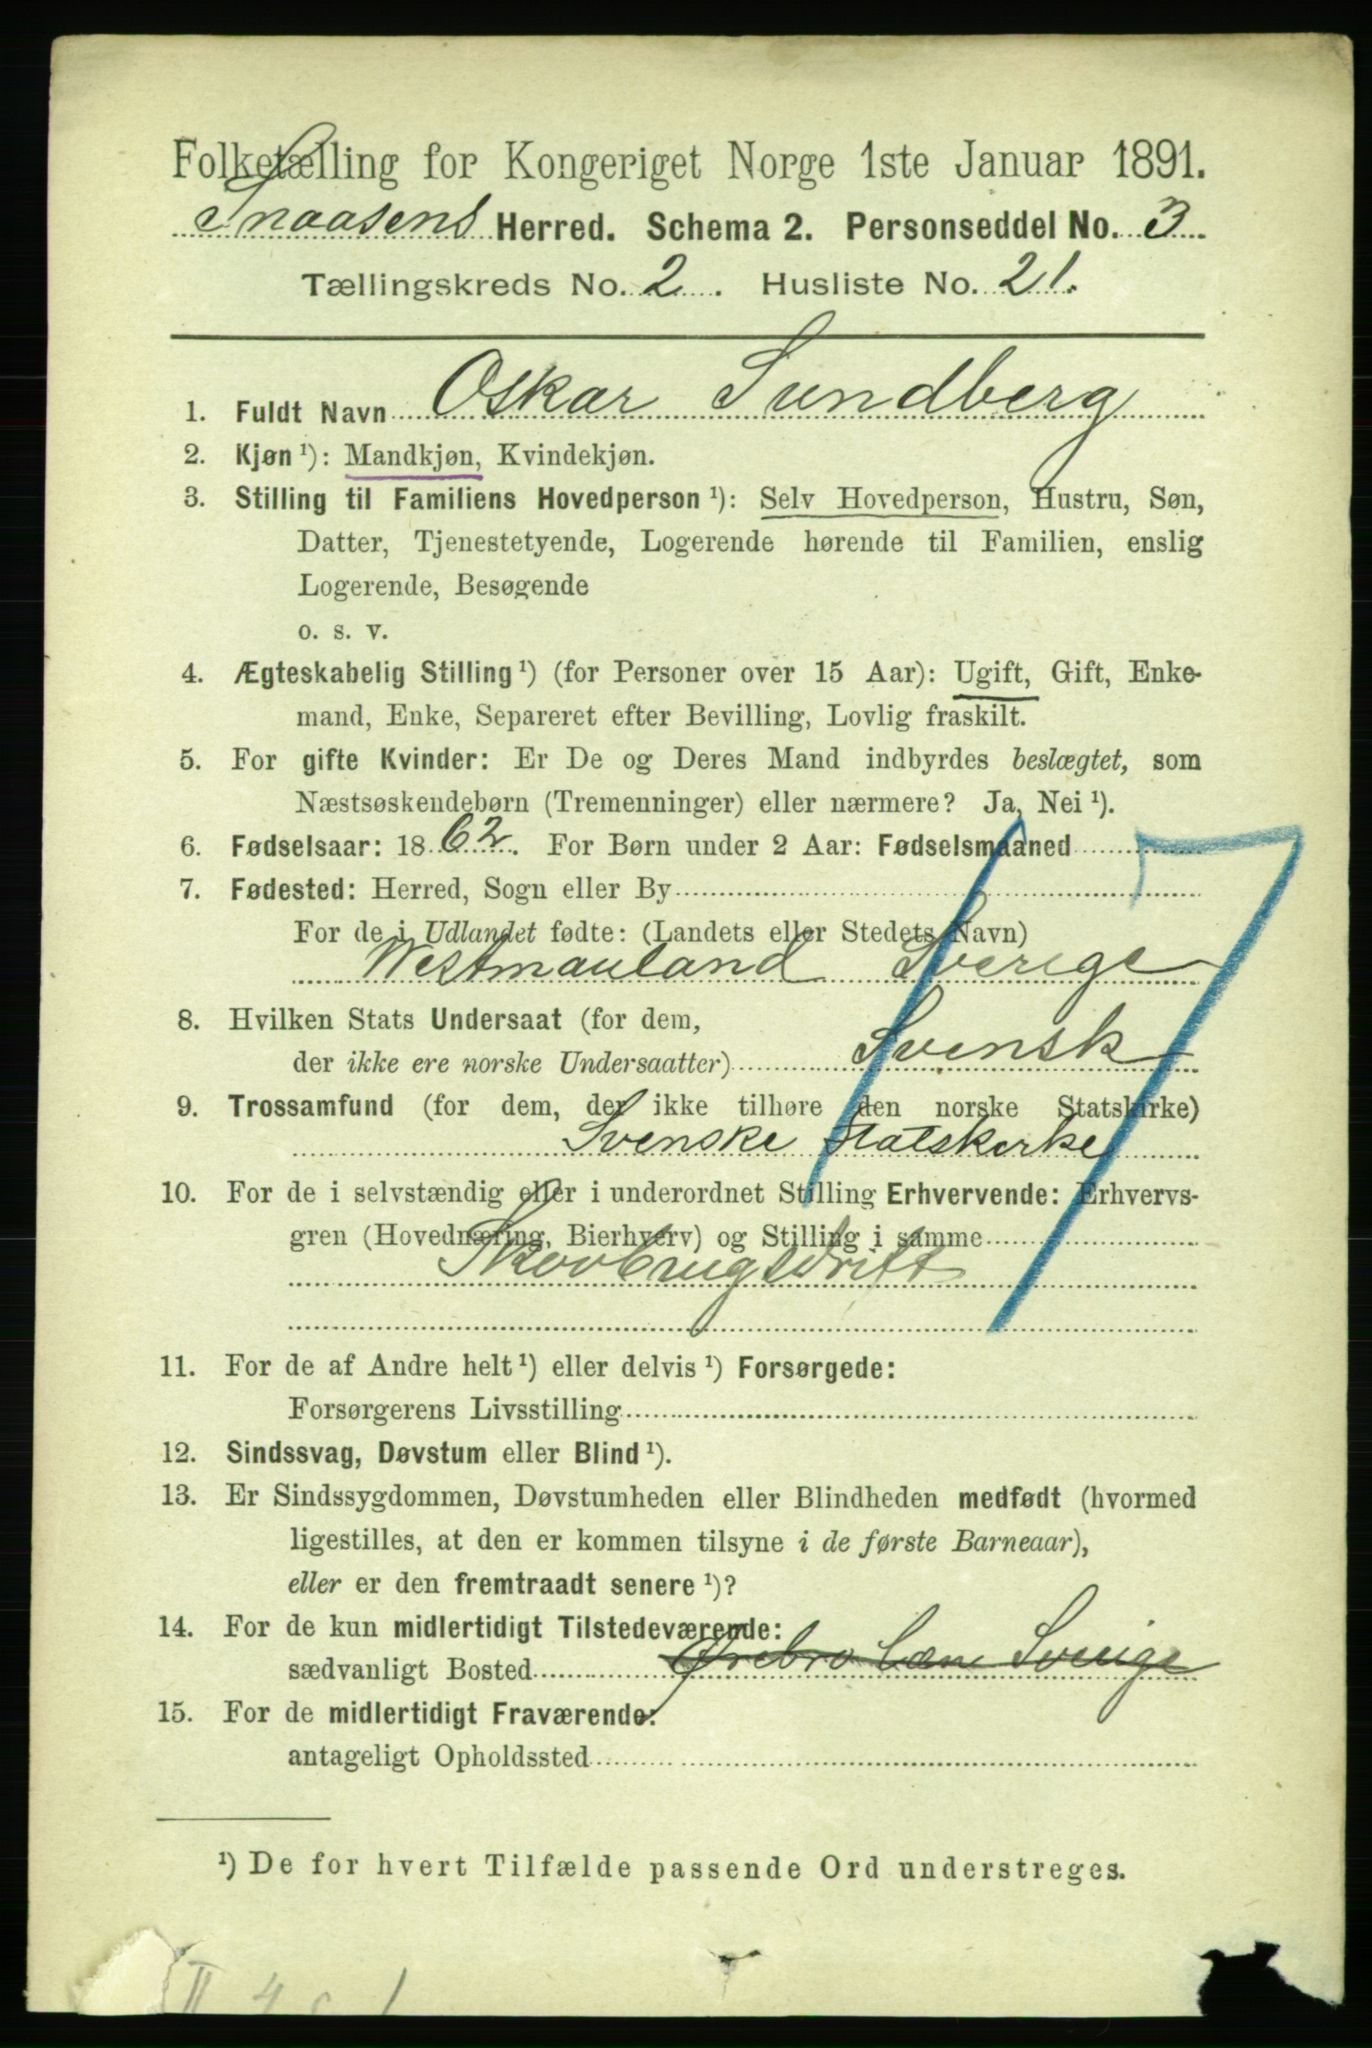 Folketælling for Kongeriget Norge 1ste Januar 1891.
Snaasens Herred. Schema 2. Personseddel No. 3
Tællingskreds No. 2. Husliste No. 21.
1. Fuldt Navn Oskar Sundberg
2. Kjøn ¹): Mandkjøn, Kvindekjøn.
3. Stilling til Familiens Hovedperson ¹): Selv Hovedperson, Hustru, Søn,
Datter, Tjenestetyende, Logerende hørende til Familien, enslig
Logerende, Besøgende
o. s. v.
4. Ægteskabelig Stilling ¹) (for Personer over 15 Aar): Ugift, Gift, Enke-
mand, Enke, Separeret efter Bevilling, Lovlig fraskilt.
5. For gifte Kvinder: Er De og Deres Mand indbyrdes beslægtet, som
Næstsøskendebørn (Tremenninger) eller nærmere? Ja, Nei ¹).
6. Fødselsaar: 1862. For Børn under 2 Aar: Fødselsmaaned
7. Fødested: Herred, Sogn eller By
For de i Udlandet fødte: (Landets eller Stedets Navn)
Westmanland Sverige
8. Hvilken Stats Undersaat (for dem,
der ikke ere norske Undersaatter) Svensk
9. Trossamfund (for dem, der ikke tilhøre den norske Statskirke)
Svenske Statskirke
10. For de i selvstændig eller i underordnet Stilling Erhvervende: Erhvervs-
gren (Hovednæring, Bierhverv) og Stilling i samme
Skovbrugsdrift
11. For de af Andre helt ¹) eller delvis ¹) Forsørgede:
Forsørgerens Livsstilling
12. Sindssvag, Døvstum eller Blind ¹).
13. Er Sindssygdommen, Døvstumheden eller Blindheden medfødt (hvormed
ligestilles, at den er kommen tilsyne i de første Barneaar),
eller er den fremtraadt senere ¹)?
14. For de kun midlertidigt Tilstedeværende:
sædvanligt Bosted Ørebro Læn Sverige
15. For de midlertidigt Fraværende:
antageligt Opholdssted
¹) De for hvert Tilfælde passende Ord understreges.